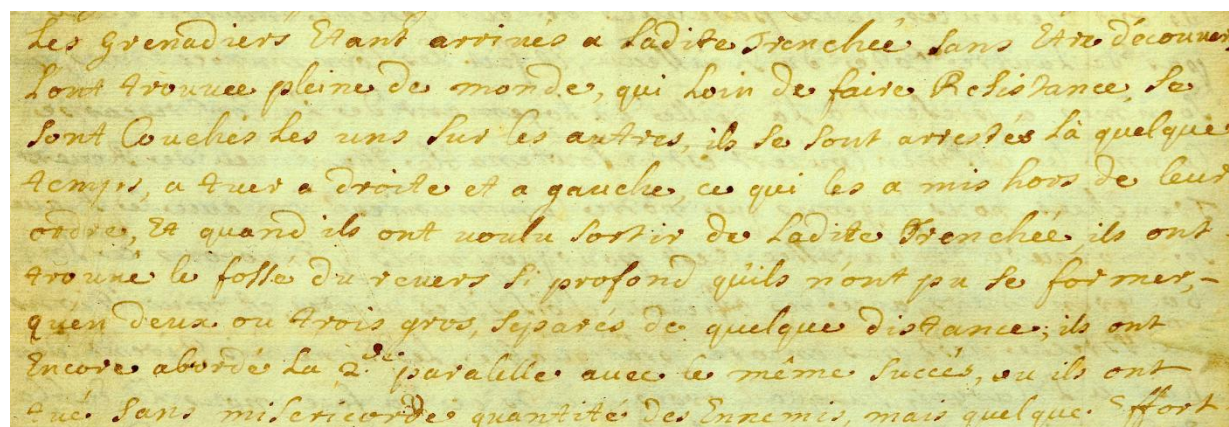 Les Grenadiers Etant arrivés a Ladite Trenchée sans Etre découver
Lont trouvée pleine de monde, qui Loin de faire Resistance, se
sont Couchés Les uns sur les autres, ils se sont arrestés Là quelque
temps, a tuer a droite et a gauche, ce qui les a mis hors de leur
ordre, Et quand ils ont voulu sortir de Ladite Trenchée, ils ont
trouvé le fossé du revers si profond qu'ils n'ont pu se former,-
qu'en deux ou trois gros, separés de quelque distance; ils ont
Encore abordé La 2.de paralelle avec le même succés, ou ils ont
tué sans misericorde quantité des Ennemis, mais quelque Effort